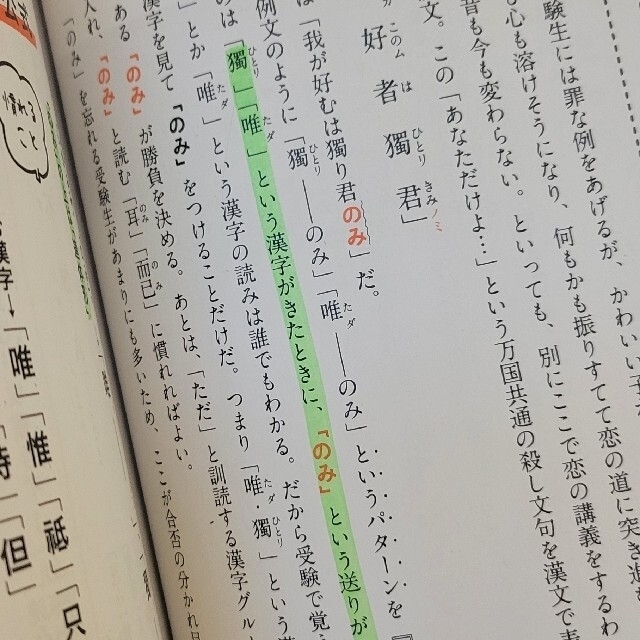 験生には罪な例をあげるが、かわいい
も心も溶けそうになり、何もかも振りすてて恋の道に突き進も
昔も今も変わらない。といっても、別にここで恋の講義をするわ
文。この「あなただけよ…」という万国共通の殺し文句を漢文で
好者獨君」
このム は ひとり きみノミ
は「我が好むは獨り君のみ」だ。
例文のように「獨――のみ」「唯――のみ」というパターンを『
ひとり たダ
のは「獨」「唯」という漢字がきたときに、「のみ」という送りが
ひとり たダ
」とか「唯」という漢字の読みは誰でもわかる。だから受験で覚
たダ
漢字を見て「のみ」をつけることだけだ。つまり「唯・獨」という
たダ ひとり
ある「のみ」が勝負を決める。あとは、「ただ」と訓読する漢字グル
入れ、「のみ」と読む「耳」「而已」に慣れればよい。
のみ のみ
「のみ」を忘れる受験生があまりにも多いため、ここが合否の分かれ目
慣れる
こと
漢字→「唯」「惟」「祗」「只
「但」